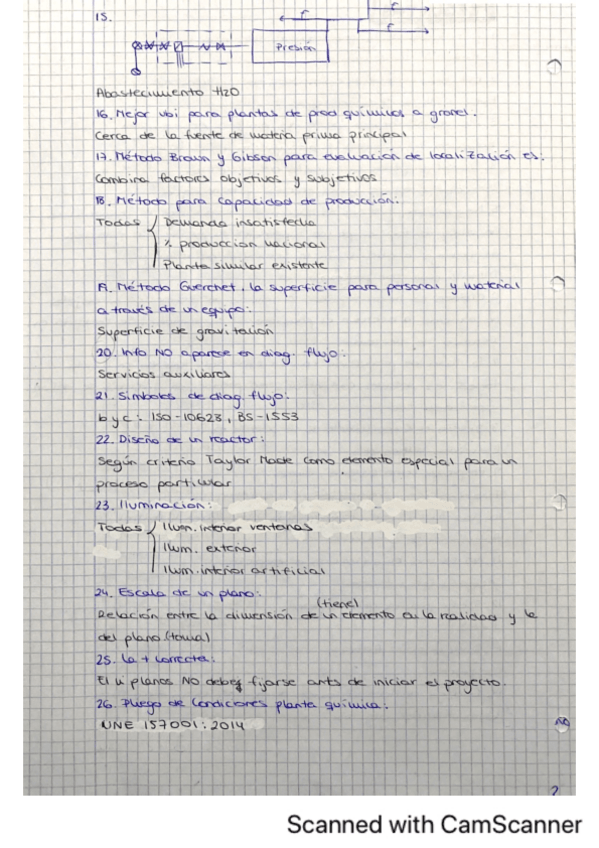 15.
F
F
Presión
Abastecimiento H2O
16. Mejor ubi para plantas de prod químicos a granel.
Cerca de la fuente de materia prima principal
17. Método Brown y Gibson para evaluación de localización es:
Combina factores objetivos y subjetivos
18. Método para capacidad de producción:
Todas Demanda insatisfecha
% producción nacional
Planta similar existente
19. Método Guerchet, la superficie para personal y material
a través de un equipo:
Superficie de gravitación
20. Info NO aparece en diag. flujo:
Servicios auxiliares
21. Símbolos de diag. flujo:
b y c: ISO-10623, BS-1553
22. Diseño de un reactor:
Según criterio Taylor Made como elemento especial para un
proceso particular
23. Iluminación:
Todas Ilum. interior ventanas
Ilum. exterior
Ilum. interior artificial
24. Escala de un plano:
(tiene)
Relación entre la dimensión de un elemento en la realidad y la
del plano (toma)
25. La + correcta:
El nº planos NO debe fijarse ants de iniciar el proyecto.
26. Pliego de Condiciones planta química:
UNE 157001:2014
2
Scanned with CamScanner